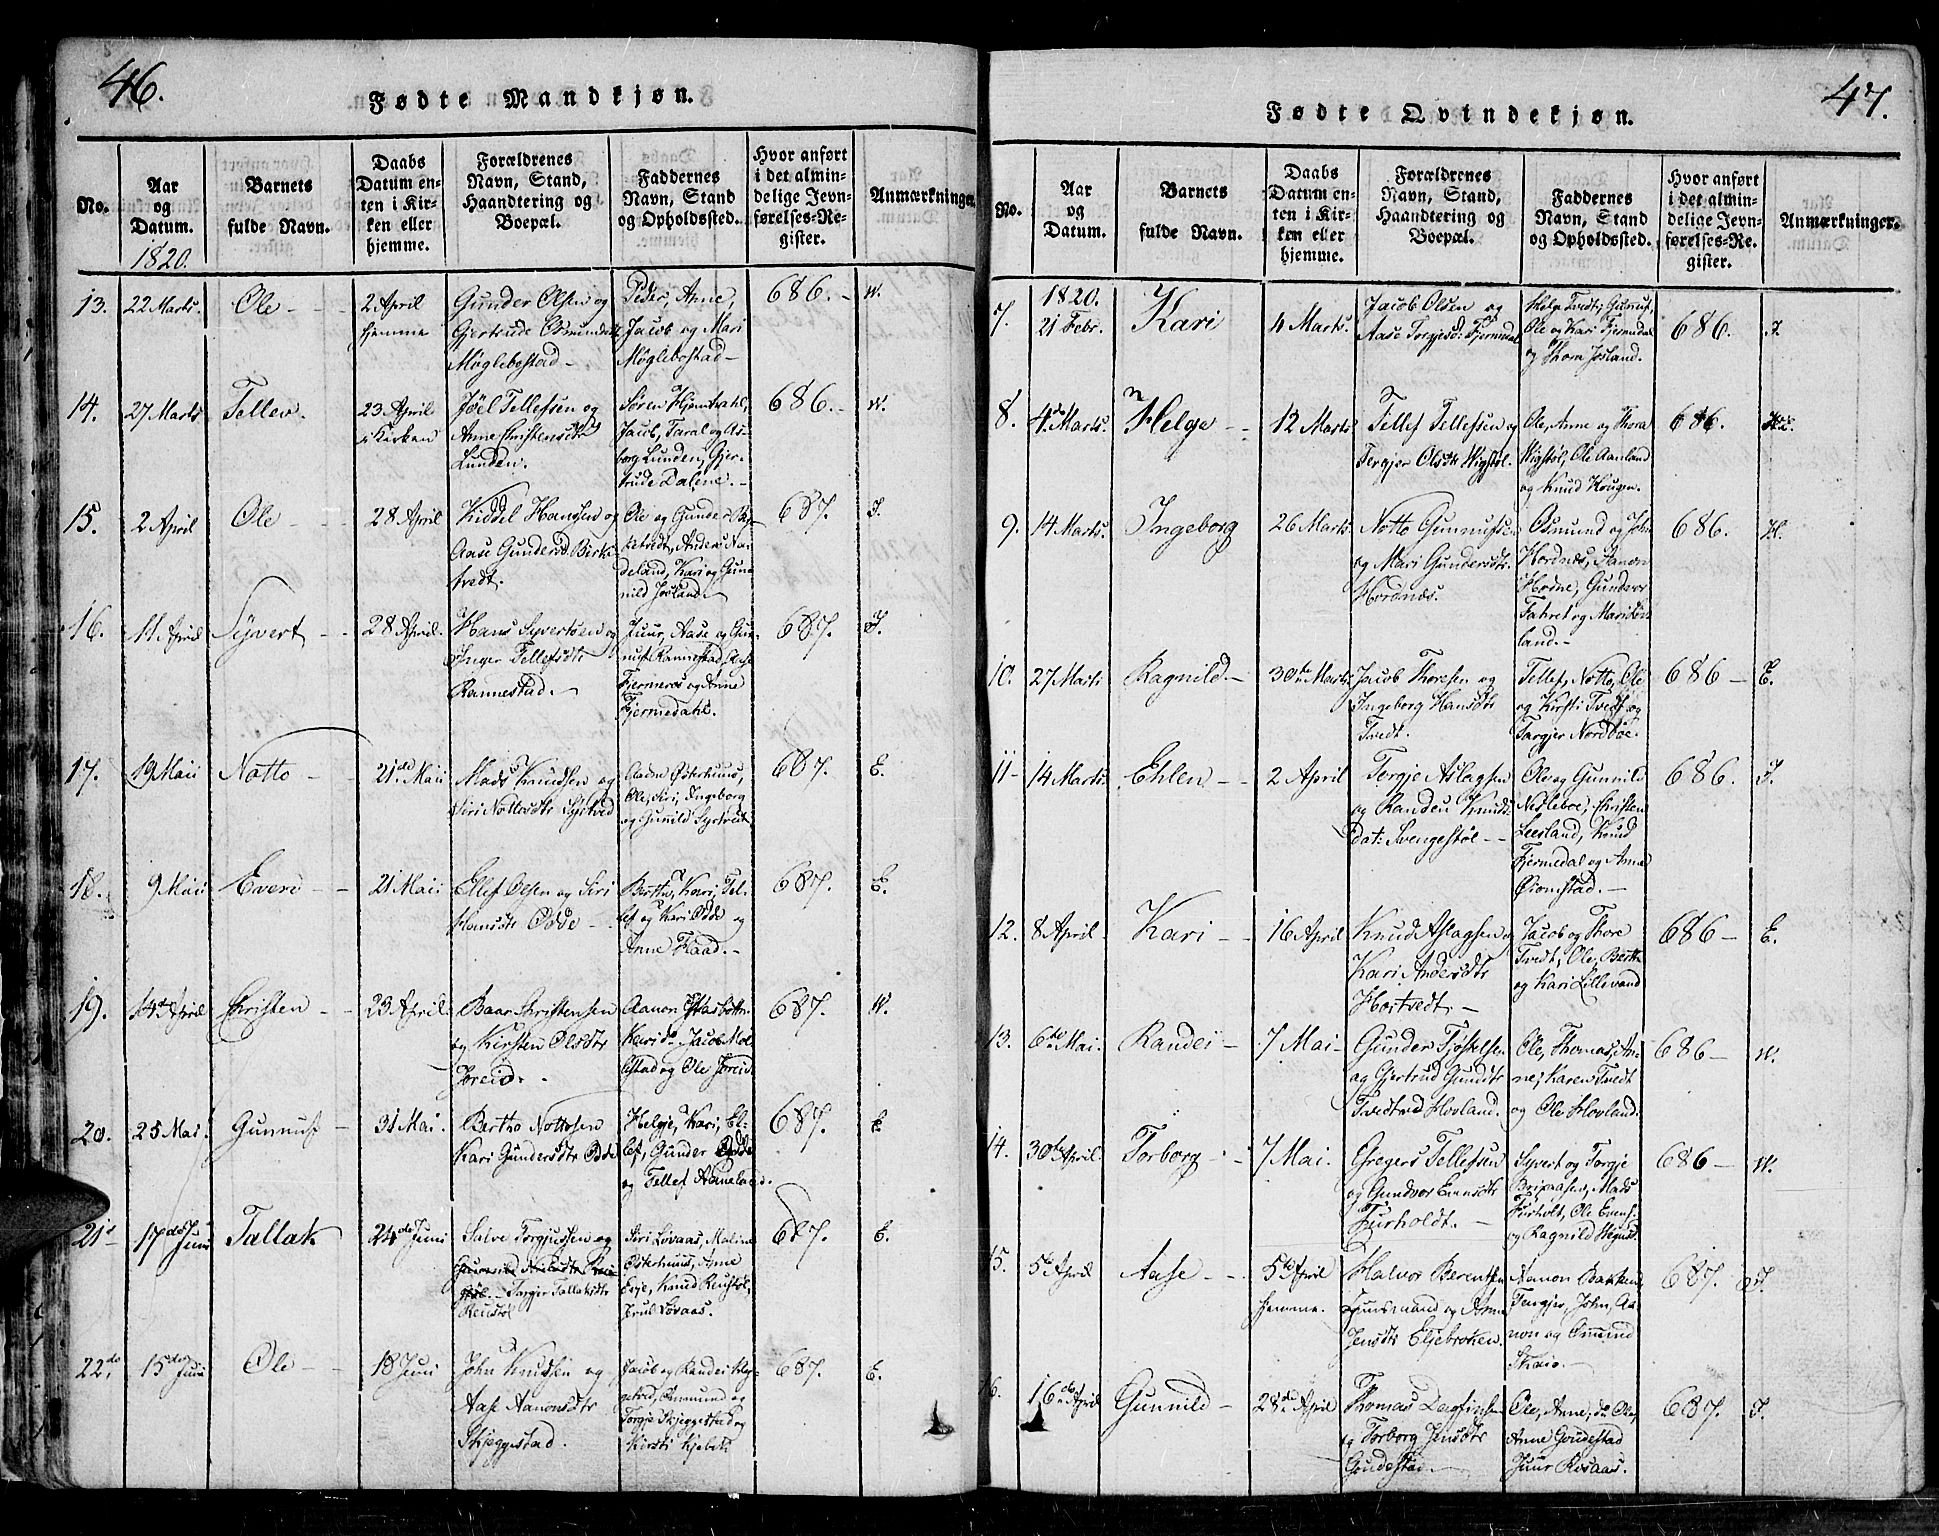 46.
Fødte Mandkjøn.
No.
Aar
og
Datum.
1820.
Barnets
fulde Navn.
Daabs
Datum en-
ten i Kir-
ken eller
hjemme.
Forældrenes
Navn, Stand,
Haandtering og
Boepæl.
Faddernes
Navn, Stand
og Opholdssted.
Hvor anført
i det almin-
delige Jevn-
førelses-Re-
gister.
Anmærkninger.
13. 22 Marts. Ole 2 April
hjemme
Gunder Olsen og
Gjertrude Osmundsdtr
Møglebostad
Peder, Anne,
Jacob og Mari
Møglebostad
686. W.
14. 27 Marts Tellev. 23 April
i Kirken
Joël Tellefsen og
Anne Christensdtr
Lunden.
Søren Hjemdahl,
Jacob, Taral og As-
borg Lunden, Gjer-
trude Dalene.
686. W.
15. 2 April Ole 28 April
Kiddel Hansen og
Aase Gundersd Birke-
tvedt.
Ole og Gunder Bir-
ketvedt, Anders Na-
deland, Kari og Gun-
nild Josland.
687. I.
16. 11 April Syvert 28 April.
Hans Syvertsen og
Inger Tellefsdtr
Rannestad.
Juur, Aase og Gun-
nuf Rannestad, Aase
Fjermeros og Anne
Fjermedahl.
687. I.
17. 19 Maii Notto 21de Maii
Mads Knudsen og
Siri Nottesdtr Syrtved
Aadne Østerhuus,
Ole, Siri, Ingeborg
og Gunild Syrtveit
687. E.
18. 9 Maii Even 21 Maii
Ellef Olsen og Siri
Hansdtr Odde
Bertho, Kari, Tel-
lef og Kari Odde og
Anne Flaad.
687. E.
19. 14de April Christen 23 April.
Baar Christensen
og Kirsten Olsdtr
Foreid.
Aanon
Kari Jacob Mol-
lestad og Ole Foreid
687. W.
20. 25 Mai Gunnuf 31 Mai.
Bertho Nottosen
Kari Gundersdtr Odde
Helge, Kari, El-
lef, Gunder Odde
og Tellef Aaneland.
687. E.
21 17de Juni Tallak 24de Juni
Salve Torgjussen og
Torgier Tallaksdtr
Reiestøl
Siri Lovaas, Maline
Østerhuus, Anne
Evje, Knud Reiestøl,
Truls Lovaas.
687. E.
22de 15de Juni Ole 18 Juni
John Knudsen og
Aase Aanonsdtr
Skjeggestad.
Jacob og Randei
Osmund og
Torgje Skjeggestad og
Kirsti
687. E.
47.
Fødte Qvindekjøn.
No.
Aar
og
Datum.
Barnets
fulde Navn.
Daabs
Datum en-
ten i Kir-
ken eller
hjemme.
Forældrenes
Navn, Stand,
Haandtering og
Boepæl.
Faddernes
Navn, Stand
og Opholdssted.
Hvor anført
i det almin-
delige Jevn-
førelses-Re-
gister.
Anmærkninger.
1820.
7. 21 Febr. Kari 4 Marts.
Jacob Olsen og
Aase Torgjesd: Fjermedal
Helge Tvedt, Gunnuf,
Ole og Kari Fjermedal
og Thora Josland.
686. I
8. 4de Marts. Helge 12 Marts
Tellef Tellefsen og
Tergjer Olsdtr Wigstøl.
Ole, Anne og Thora
Wigstøl, Ole Aanland
og Knud Hougen.
686.
9. 14 Marts. Ingeborg 26 Marts.
Notto Gunnufsen
og Mari Gundersdtr
Hordnæs.
Osmund og John
Hordnes, Aanon
Hodne, Gundvor
Fahret og Mari
land.
686. H.
10. 27 Marts Ragnild 30te Marts
Jacob Thoresen og
Ingeborg Hansdtr
Tvedt.
Tellef, Notto, Ole
og Kirsti Tvedt og
Torgjer Nordboe.
686 E.
11 14 Marts Ehlen 2 April
Torgje Aslagsen
og Randeu Knuds-
dat: Svengestøl
Ole og Gunnild
Nesleboe, Christen
Leesland, Knud
Fjermedal og Anne
686. I.
12. 8 April Kari 16 April
Knud Aslagsen og
Kari Andersdtr
Hortvedt.
Jacob og Thore
Tvedt, Ole, Berthe
og Kari Lillevand
686 E.
13. 6te Mai. Randei 7 Mai
Gunder Tjøstelsen
og Gjertrud Gundtr
Tvedtvid Hovland.
Ole, Thomas, An-
ne, Karen Tvedt
og Ole Hovland.
686 W.
14. 30te April. Torborg 7 Mai.
Gregers Tellefsen
og Gundvor Evensdtr
Furholdt.
Syvert og Torgje
Mads
Furholt, Ole Evens.
og Ragnild
686 W.
15. 5te April Aase 5te April
hjemme.
Halvor Berentsen
Huusmand og Anne
Jensdtr Eljebroken.
Aanon Bakken,
Tengjer, John, Aa-
non og Osmund
Skaio.
687. I.
16. 16de April Gunnild 28de April
Thomas Dagfinsen
og Torborg Jensdtr
Goudestad.
Ole, Anne, Ole,
Anne Goudestad
Juur Rosaas.
687. I.